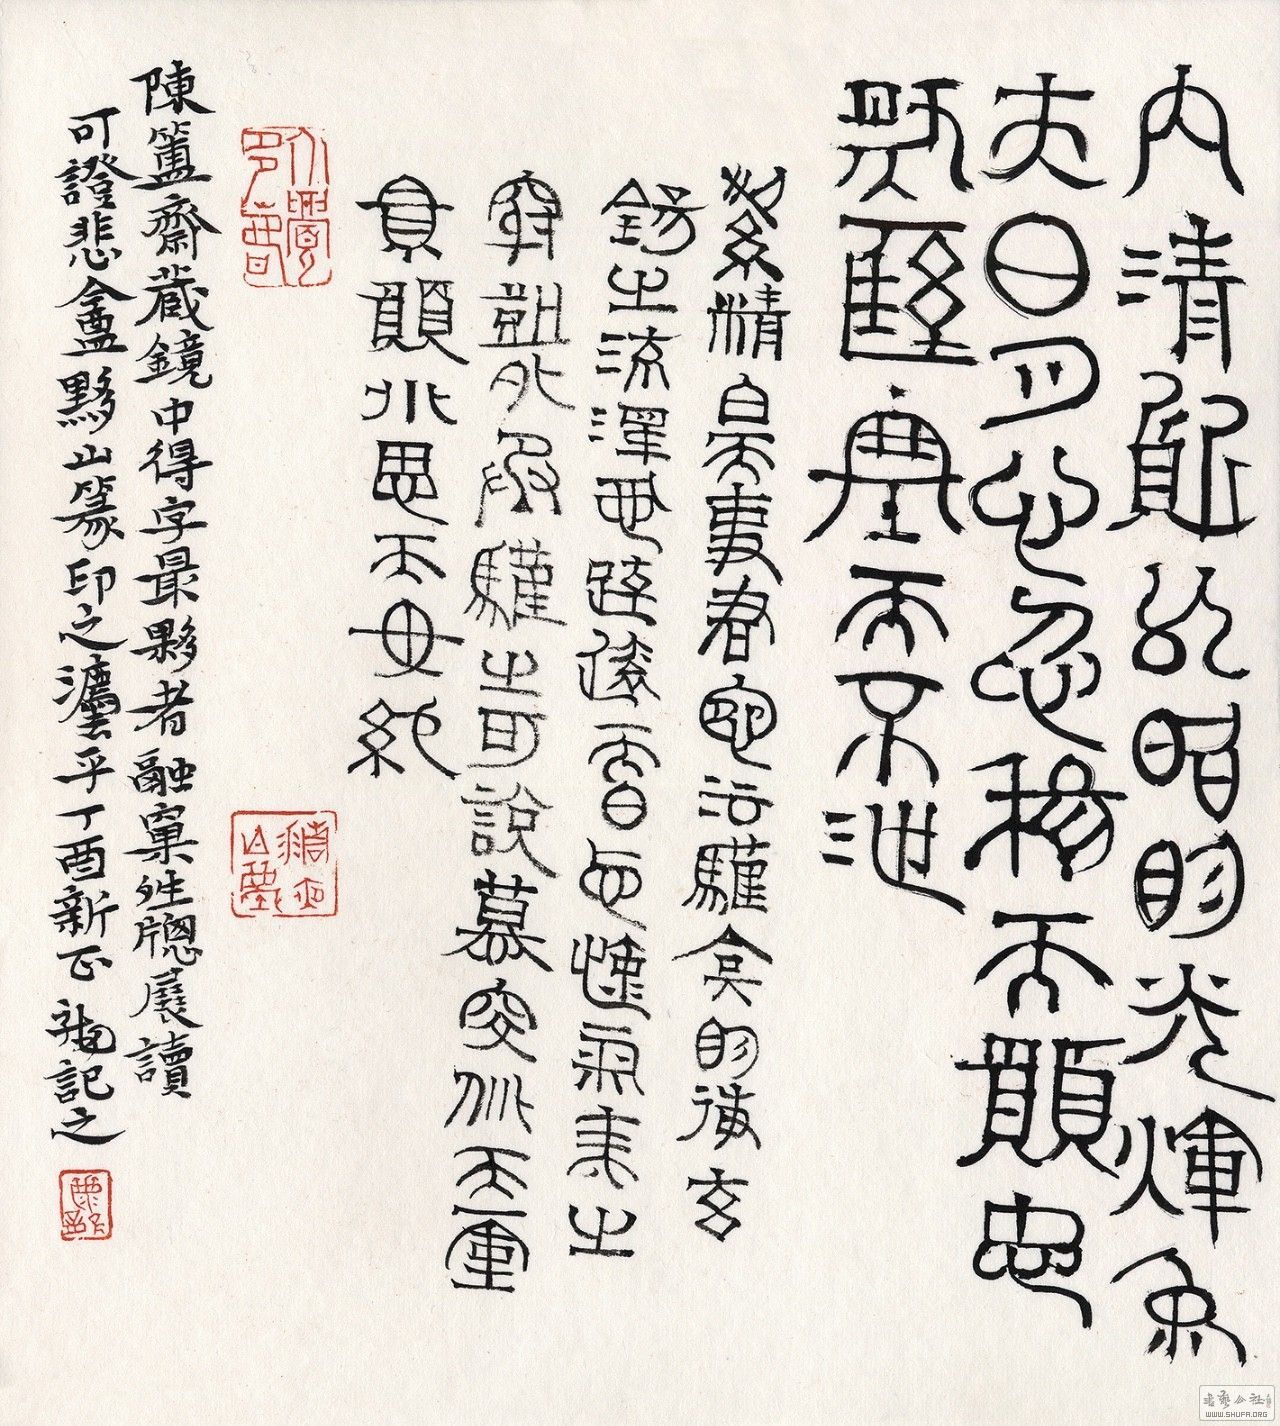 内清質以昭明光輝象
夫日月心忽穆而願忠
然雍塞而不泄
絜精白而事君宛污驩弇明彼玄
錫之流澤恐疏遠而日忘美之
窮外承驩之可說慕窔佻而
景願永思而毋絕
陳簠齋藏鏡中得字最夥者融窠牕展讀
可證悲盦黟山篆印之灋乎丁酉新正記之
WWW.SHUFA.ORG